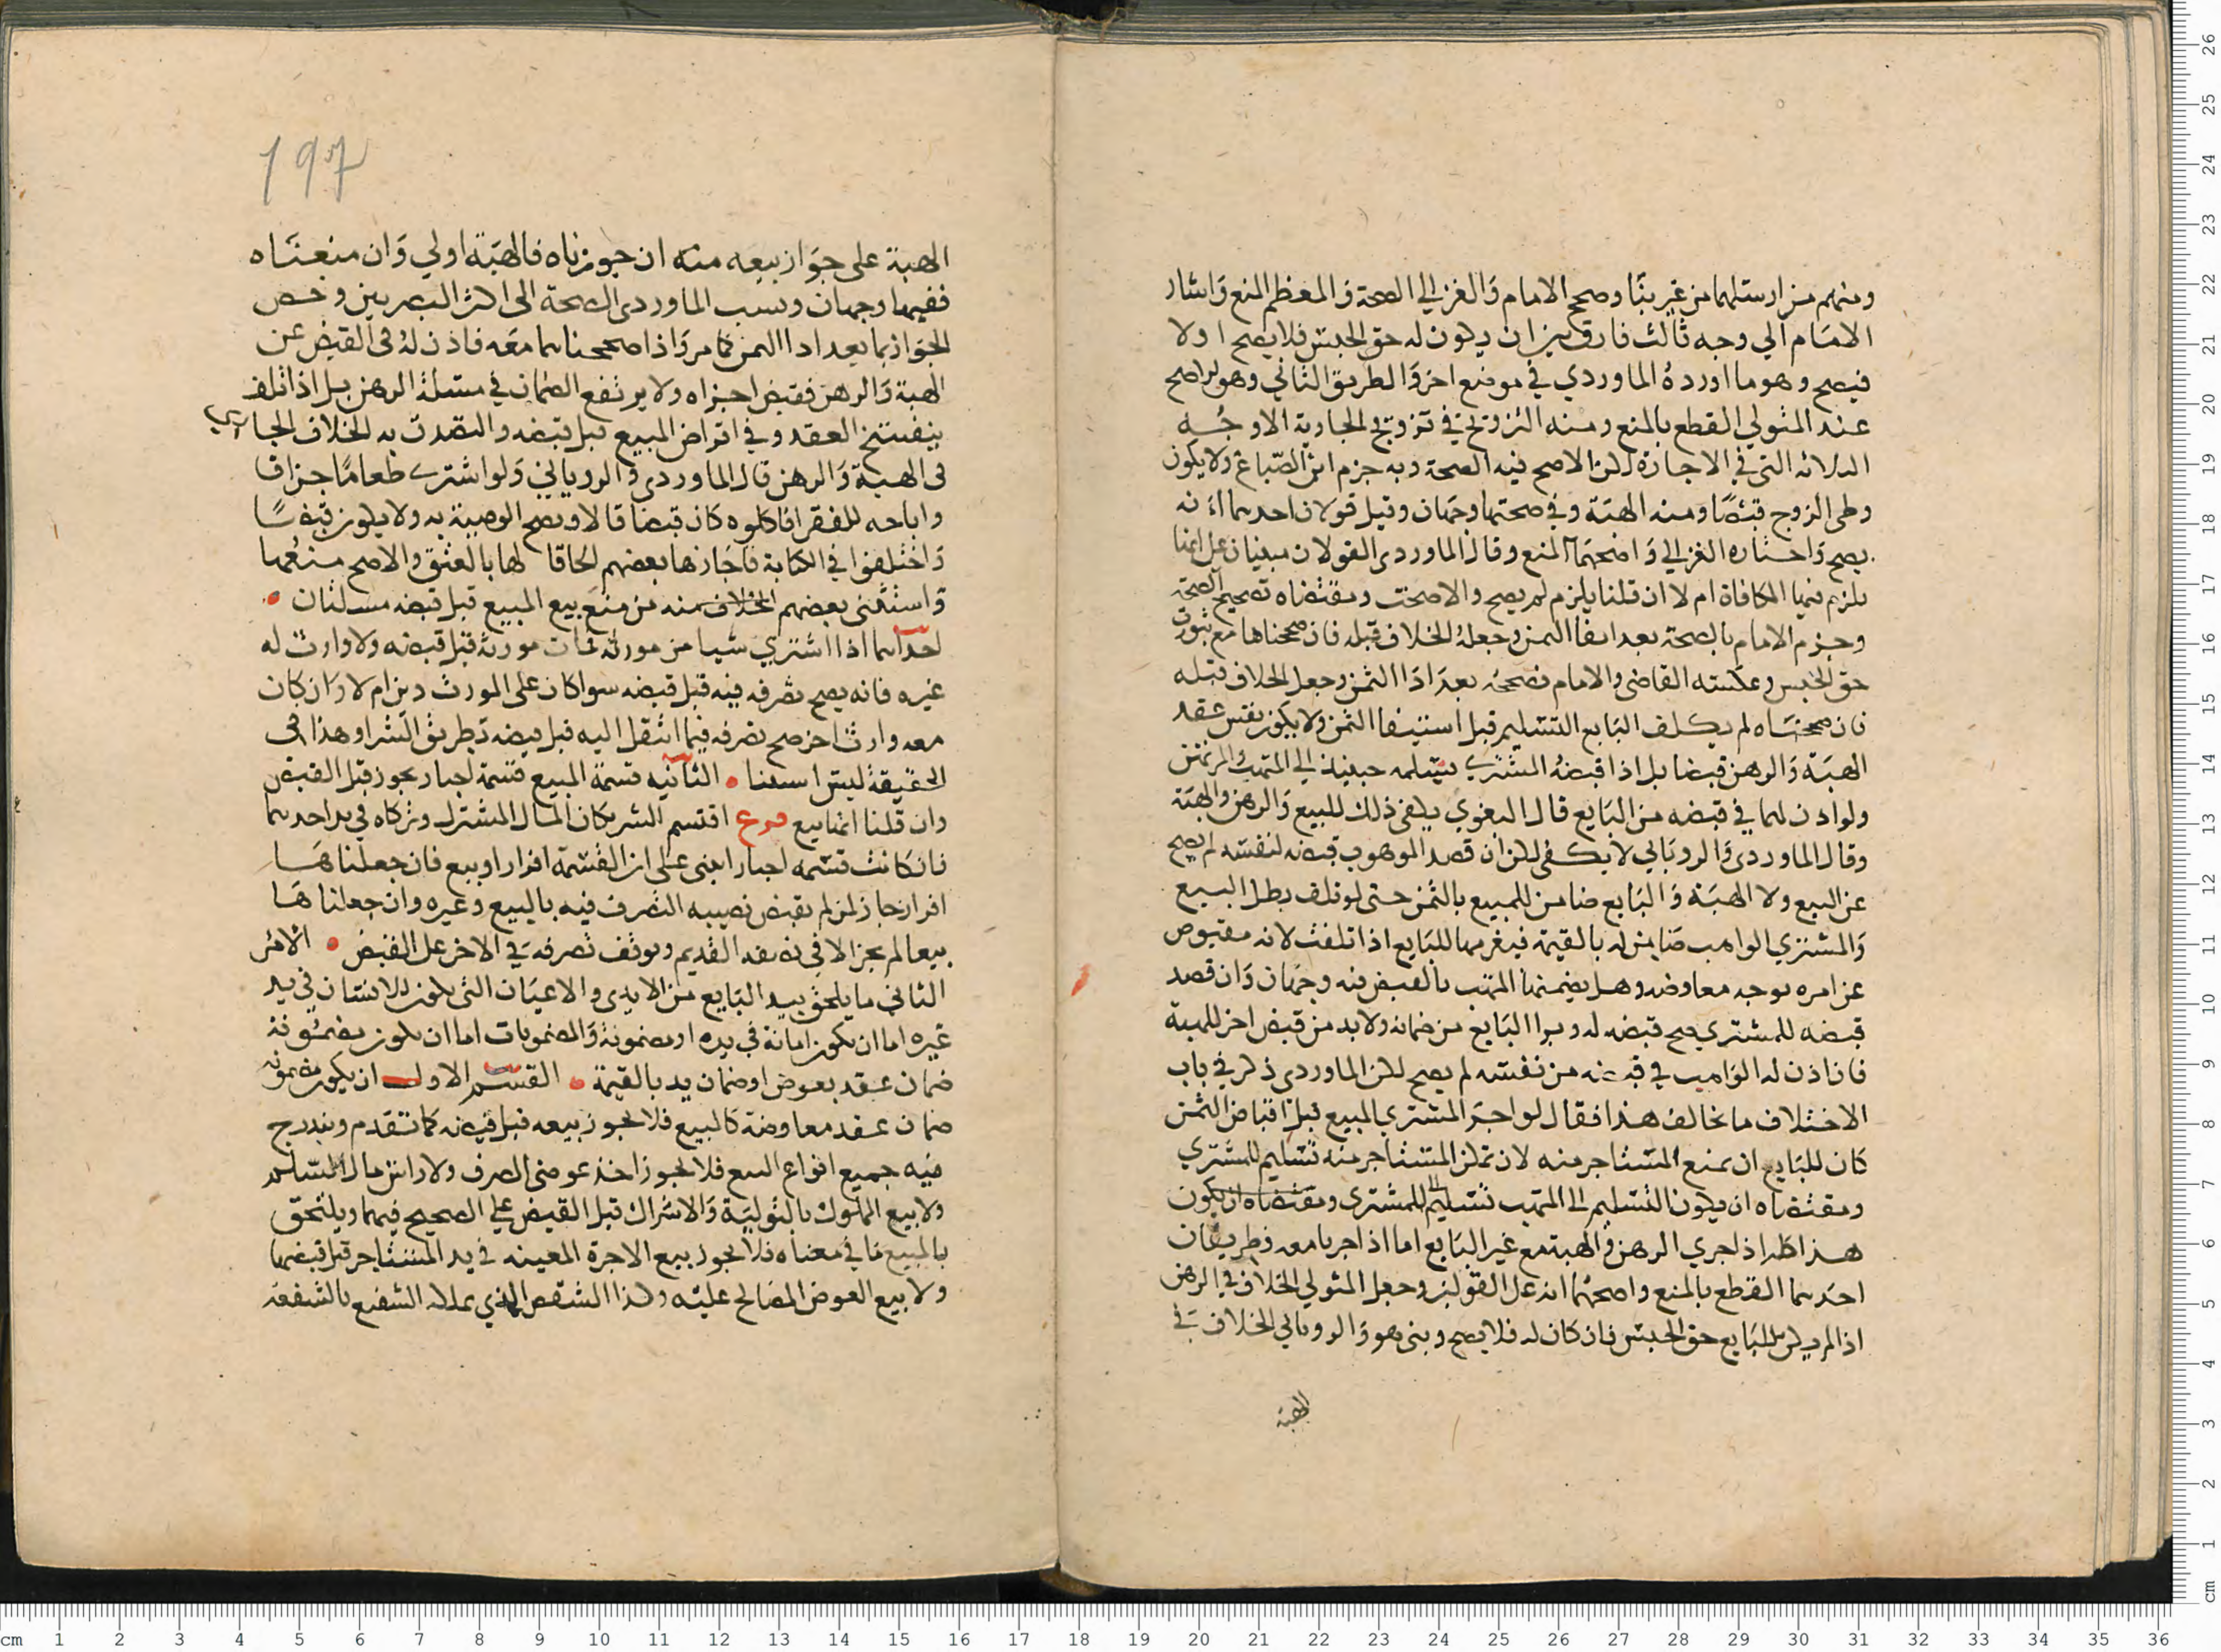 ومنهم من ارسلهما من غير بنا وصحح الامام والغزالي الصحة والمعظم المنع واشار
الامام الي وجه ثالث فارق بين ان يكون له حق الحبس فلا يصح اولا
فيصح وهو ما اورده الماوردي في موضع اخر والطريق الثاني وهو الاصح
عند المتولي القطع بالمنع ومنه التزويج في تزويج الجارية الاوجه
الثلاثة التي في الاجارة لكن الاصح فيه الصحة وبه جزم ابن الصباغ ولا يكون
وطي الزوج قبضا ومنه الهبة وفي صحتها وجهان وقيل قولان احدهما انه
يصح واختاره الغزالي واصحهما المنع وقال الماوردي القولان مبنيان على انها
يلزم فيها المكافاة ام لا ان قلنا يلزم لم يصح والا صحت ومقتضاه تصحيح الصحة
وجزم الامام بالصحة بعد ايفا الثمن وجعل الخلاف قبله فان صححناها مع ثبوت
حق الحبس وعكسه القاضي والامام نصححه بعد اذا الثمن وجعل الخلاف قبله
فان صححناه لم يكلف البايع التسليم قبل استيفا الثمن ولا يكون نفس عقد
الهبة والرهن قبضا بل اذا قبضه المشتري يسلمه حينيذ الي المتهب والمرتهن
ولو اذن لهما في قبضه من البايع قال البغوي يكفي ذلك للبيع والرهن والهبة
وقال الماوردي والروياني لا يكفي لكن ان قصد الموهوب قبضه لنفسه لم يصح
عن البيع ولا الهبة والبايع ضامن للمبيع بالثمن حتى لو تلف بطل البيع
والمشتري الواهب ضامن له بالقيمة فيغرمها للبايع اذا تلفت لانه مقبوض
عن امره بوجه معاوضه وهل يضمنها المتهب بالقبض فيه وجهان وان قصد
قبضه للمشتري صح قبضه له وبرا البايع من ضمانه ولا بد من قبض اخر للهبة
فان اذن له الواهب في قبضه من نفسه لم يصح لكن الماوردي ذكر في باب
الاختلاف ما يخالف هذا فقال لو اجر المشتري المبيع قبل اقباض الثمن
كان للبايع ان يمنع المستاجر منه لان تمكن المستاجر منه تسليم للمشتري
ومقتضاه ان يكون التسليم الى المتهب تسليم للمشتري ومقتضاه ان يكون
هذا كله اذا جري الرهن والهبة مع غير البايع اما اذا جريا معه فطريقان
احدهما القطع بالمنع واصحهما انه على القولين وجعل المتولي الخلاف في الرهن
اذا لم يكن للبايع حق الحبس فان كان له فلا يصح وبني هو والروياني الخلاف في
الهبة
197
الهبة على جواز بيعه منه ان جوزناه فالهبة اولي وان منعناه
ففيها وجهان ونسب الماوردي الصحة الى اكثر البصريين وخص
الجواز بما بعد ادا الثمن كما مر واذا صححناهما معه فاذن له في القبض عن
الهبة والرهن فقبض اجزاه ولا يرتفع الضمان في مسلة الرهن بل اذا تلف
ينفسخ العقد وفي اقراض المبيع قبل قبضه والتصدق به الخلاف الجاري
في الهبة والرهن قال الماوردي والروياني ولو اشترى طعاما جزافا
واباحه للفقرا فاكلوه كان قبضا قالا ويصح الوصية به ولا يكون قبضا
واختلفوا في الكتابة فاجازها بعضهم الحاقا لها بالعتق والاصح منعهما
واستثنى بعضهم الخلاف منه من منع بيع المبيع قبل قبضه مسلتان
احداهما اذا اشتري شيا من مورثه فمات مورثه قبل قبضه ولا وارث له
غيره فانه يصح تصرفه فيه قبل قبضه سوا كان على المورث دين ام لا وان كان
معه وارث اخر صح تصرفه فيما انتقل اليه قبل قبضه بطريق الشرا وهذا في
الحقيقة ليس استثنا الثانيه قسمة المبيع قسمة اجبار يجوز قبل القبض
وان قلنا انها بيع فرع اقتسم الشريكان المال المشترك وتركاه في يد احدهما
فان كانت قسمه اجبار ابني على ان القسمة افراز او بيع فان جعلناها
افراز جاز لمن لم يقبض نصيبه التصرف فيه بالبيع وغيره وان جعلناها
بيعا لم يجز الا في نصفه القديم وتوقف تصرفه في الاخر على القبض الامر
الثاني ما يلحق بيد البايع من الايدي والاعيان التي يكون للانسان في يد
غيره اما ان يكون امانة في يده او مضمونة والمضمونات اما ان يكون مضمونة
ضمان عقد بعوض او ضمان يد بالقيمة القسم الاول ان يكون مضمونه
ضمان عقد معاوضة كالمبيع فلا يجوز بيعه قبل قبضه كما تقدم ويندرج
فيه جميع انواع البيع فلا يجوز اخذ عوضي الصرف ولا راس مال السلم
ولا بيع المملوك بالتولية والاشراك قبل القبض علي الصحيح فيهما ويلتحق
بالمبيع ما في معناه فلا يجوز بيع الاجرة المعينه في يد المستاجر قبل قبضها
ولا بيع العوض المصالح عليه وكذا الشقص الذي يملكه الشفيع بالشفعة